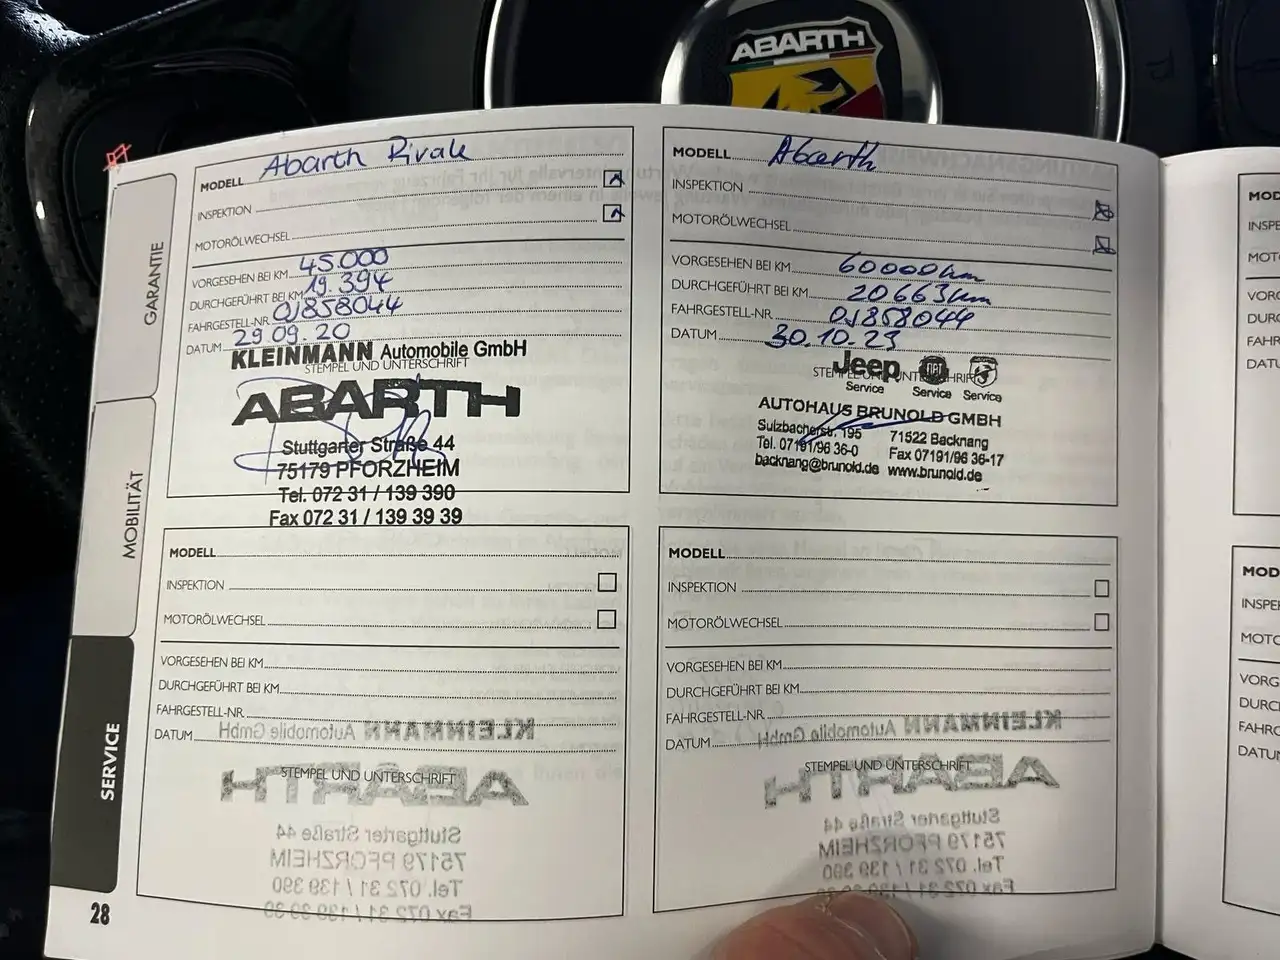 ABARTH
MODELL Abarth Rivale
INSPEKTION
MOTORÖLWECHSEL
VORGESEHEN BEI KM 45.000
DURCHGEFÜHRT BEI KM 19.394
FAHRGESTELL-NR. 0J858044
DATUM 29.09.20
KLEINMANN Automobile GmbH
STEMPEL UND UNTERSCHRIFT
ABARTH
Stuttgarter Straße 44
75179 PFORZHEIM
Tel. 072 31 / 139 390
Fax 072 31 / 139 39 39
MODELL Abarth
INSPEKTION
MOTORÖLWECHSEL
VORGESEHEN BEI KM 60000km
DURCHGEFÜHRT BEI KM 20663km
FAHRGESTELL-NR. 0J858044
DATUM 30.10.23
Jeep FIAT
STEMPEL UND UNTERSCHRIFT
Service Service Service
AUTOHAUS BRUNOLD GMBH
Sulzbacherstr. 195 71522 Backnang
Tel. 07191/96 36-0 Fax 07191/96 36-17
backnang@brunold.de www.brunold.de
MODELL
INSPEKTION
MOTORÖLWECHSEL
VORGESEHEN BEI KM
DURCHGEFÜHRT BEI KM
FAHRGESTELL-NR.
DATUM
STEMPEL UND UNTERSCHRIFT
MODELL
INSPEKTION
MOTORÖLWECHSEL
VORGESEHEN BEI KM
DURCHGEFÜHRT BEI KM
FAHRGESTELL-NR.
DATUM
STEMPEL UND UNTERSCHRIFT
GARANTIE
MOBILITÄT
SERVICE
28
MOD
INSPE
MOT
VORG
DURC
FAHR
DATU
MOD
INSPE
MOTO
VORG
DURC
FAHRG
DATUM